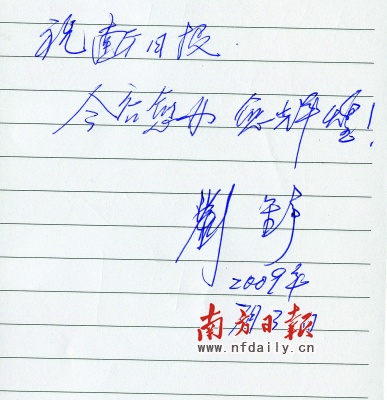 祝日报
今后愈办愈辉煌!
劉
2009年
南方日報
www.nfdaily.cn